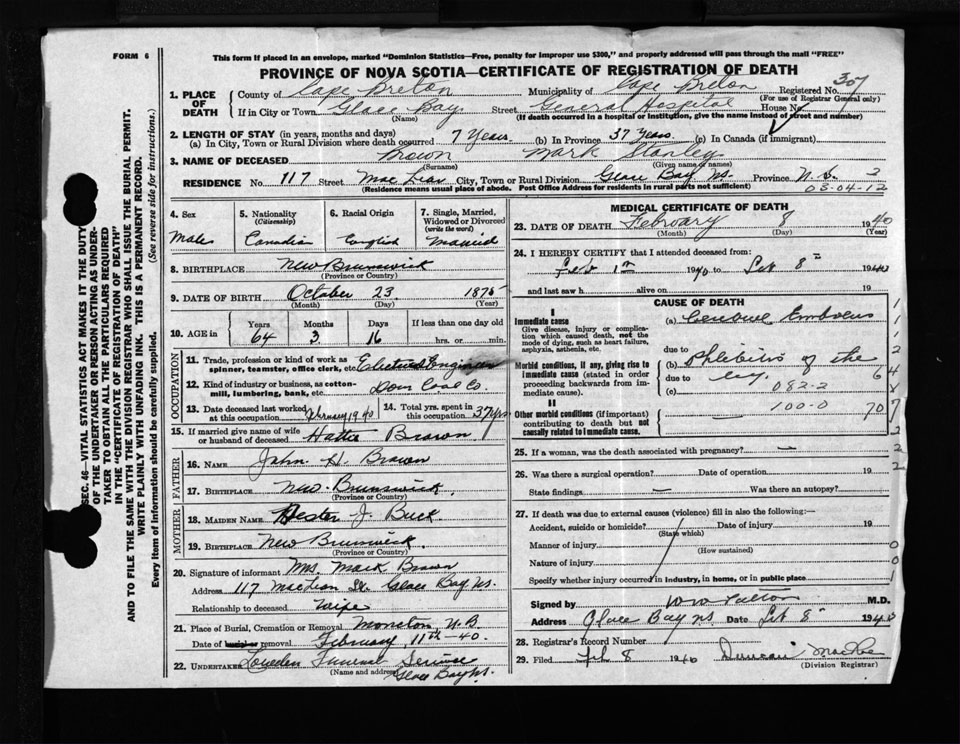 FORM 6
This form if placed in an envelope, marked "Dominion Statistics—Free, penalty for improper use $300," and properly addressed will pass through the mail "FREE"
PROVINCE OF NOVA SCOTIA—CERTIFICATE OF REGISTRATION OF DEATH
1. PLACE OF DEATH
County of Cape Breton Municipality of Cape Breton Registered No. 307
(For use of Registrar General only)
If in City or Town Glace Bay Street General Hospital House No.
(Name) (If death occurred in a hospital or institution, give the name instead of street and number)
2. LENGTH OF STAY (in years, months and days)
(a) In City, Town or Rural Division where death occurred 7 Years. (b) In Province 37 Years. (c) In Canada (if immigrant)
3. NAME OF DECEASED Brown Mark Stanley
(Surname) (Given name or names)
RESIDENCE No. 117 Street MacLean City, Town or Rural Division Glace Bay NS. Province N.S. 2
(Residence means usual place of abode. Post Office Address for residents in rural parts not sufficient) 03-04-12
4. Sex Male
5. Nationality (Citizenship) Canadian
6. Racial Origin English
7. Single, Married, Widowed or Divorced (write the word) Married
8. BIRTHPLACE New Brunswick
(Province or Country)
9. DATE OF BIRTH October 23 1875
(Month) (Day) (Year)
10. AGE in Years 64 Months 3 Days 16 If less than one day old hrs. or min.
OCCUPATION
11. Trade, profession or kind of work as spinner, teamster, office clerk, etc. Electrical Engineer
12. Kind of industry or business, as cotton-mill, lumbering, bank, etc. Dom Coal Co.
13. Date deceased last worked at this occupation February 1940
14. Total yrs. spent in this occupation 37 yrs.
15. If married give name of wife or husband of deceased Hattie Brown
FATHER
16. NAME John H. Brown
17. BIRTHPLACE New Brunswick.
(Province or Country)
MOTHER
18. MAIDEN NAME Hester J. Buck
19. BIRTHPLACE New Brunswick.
(Province or Country)
20. Signature of informant Mrs. Mark Brown
Address 117 MacLean St. Glace Bay NS.
Relationship to deceased Wife
21. Place of Burial, Cremation or Removal Moncton N.B.
Date of burial or removal February 11th - 40.
22. UNDERTAKER Funeral Service
(Name and address) Glace Bay NS.
MEDICAL CERTIFICATE OF DEATH
23. DATE OF DEATH February 8 1940
(Month) (Day) (Year)
24. I HEREBY CERTIFY that I attended deceased from:
Feb 1st 1940 to Feb 8th 1940
and last saw h alive on 19
CAUSE OF DEATH
I
Immediate cause
Give disease, injury or complication which caused death, not the mode of dying, such as heart failure, asphyxia, asthenia, etc.
(a) Embolus
due to
Morbid conditions, if any, giving rise to immediate cause (stated in order proceeding backwards from immediate cause).
(b) Phlebitis of the
due to leg.
(c) 082-2
II
Other morbid conditions (if important) contributing to death but not causally related to immediate cause.
100-0 70
25. If a woman, was the death associated with pregnancy? —
26. Was there a surgical operation? — Date of operation 19
State findings — Was there an autopsy?
27. If death was due to external causes (violence) fill in also the following:—
Accident, suicide or homicide? Date of injury 19
(State which)
Manner of injury
(How sustained)
Nature of injury
Specify whether injury occurred in industry, in home, or in public place
Signed by M.D.
Address Glace Bay NS Date Feb 8th 1940
28. Registrar's Record Number
29. Filed Feb 8 1940 Duncan
(Division Registrar)
SEC. 46—VITAL STATISTICS ACT MAKES IT THE DUTY
OF THE UNDERTAKER OR PERSON ACTING AS UNDER-
TAKER TO OBTAIN ALL THE PARTICULARS REQUIRED
IN THE "CERTIFICATE OF REGISTRATION OF DEATH"
AND TO FILE THE SAME WITH THE DIVISION REGISTRAR WHO SHALL ISSUE THE BURIAL PERMIT.
WRITE PLAINLY WITH UNFADING INK. THIS IS A PERMANENT RECORD.
Every item of information should be carefully supplied. (See reverse side for instructions.)